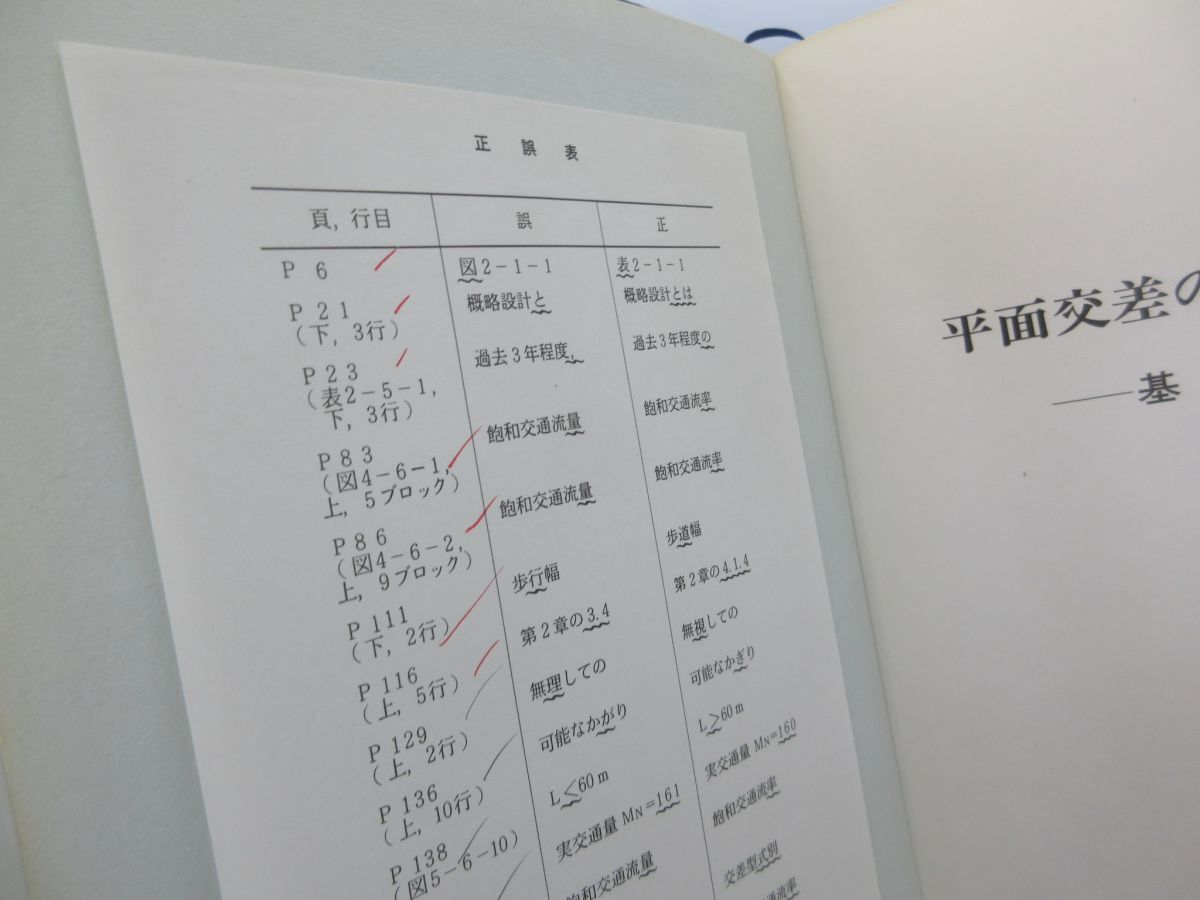 正誤表
頁, 行目 誤 正
P 6 図2-1-1 表2-1-1
P 21 概略設計と 概略設計とは
(下, 3行)
P 23 過去3年程度, 過去3年程度の
(表2-5-1,
下, 3行)
P 83 飽和交通流量 飽和交通流率
(図4-6-1,
上, 5ブロック)
P 86 飽和交通流量 飽和交通流率
(図4-6-2,
上, 9ブロック)
P 111 歩行幅 歩道幅
(下, 2行)
P 116 第2章の3.4 第2章の4.1.4
(上, 5行)
P 129 無理しての 無視しての
(上, 2行)
P 136 可能なかがり 可能なかぎり
(上, 10行)
P 138 L≦60m L≧60m
(図5-6-10)
実交通量 MN=161 実交通量 MN=160
飽和交通流量 飽和交通流率
交差型式別
通流率
平面交差の
――基